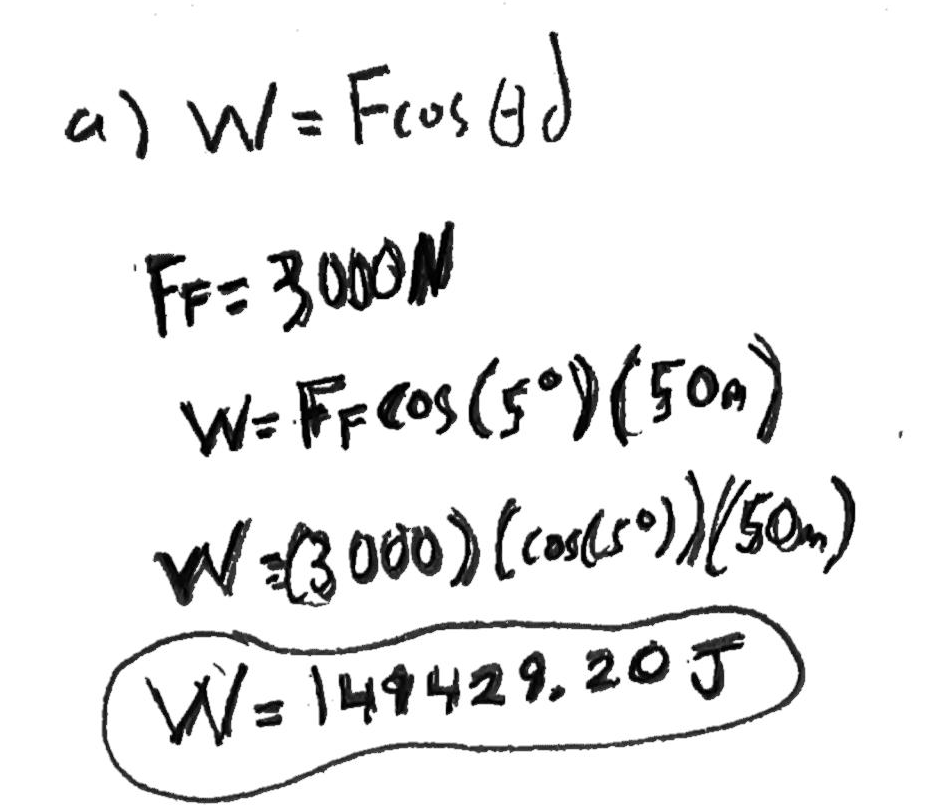 a) W = Fcos θ d
FF = 3000N
W = FF cos (5°) (50m)
W = (3000) (cos(5°)) (50m)
W = 149429.20 J